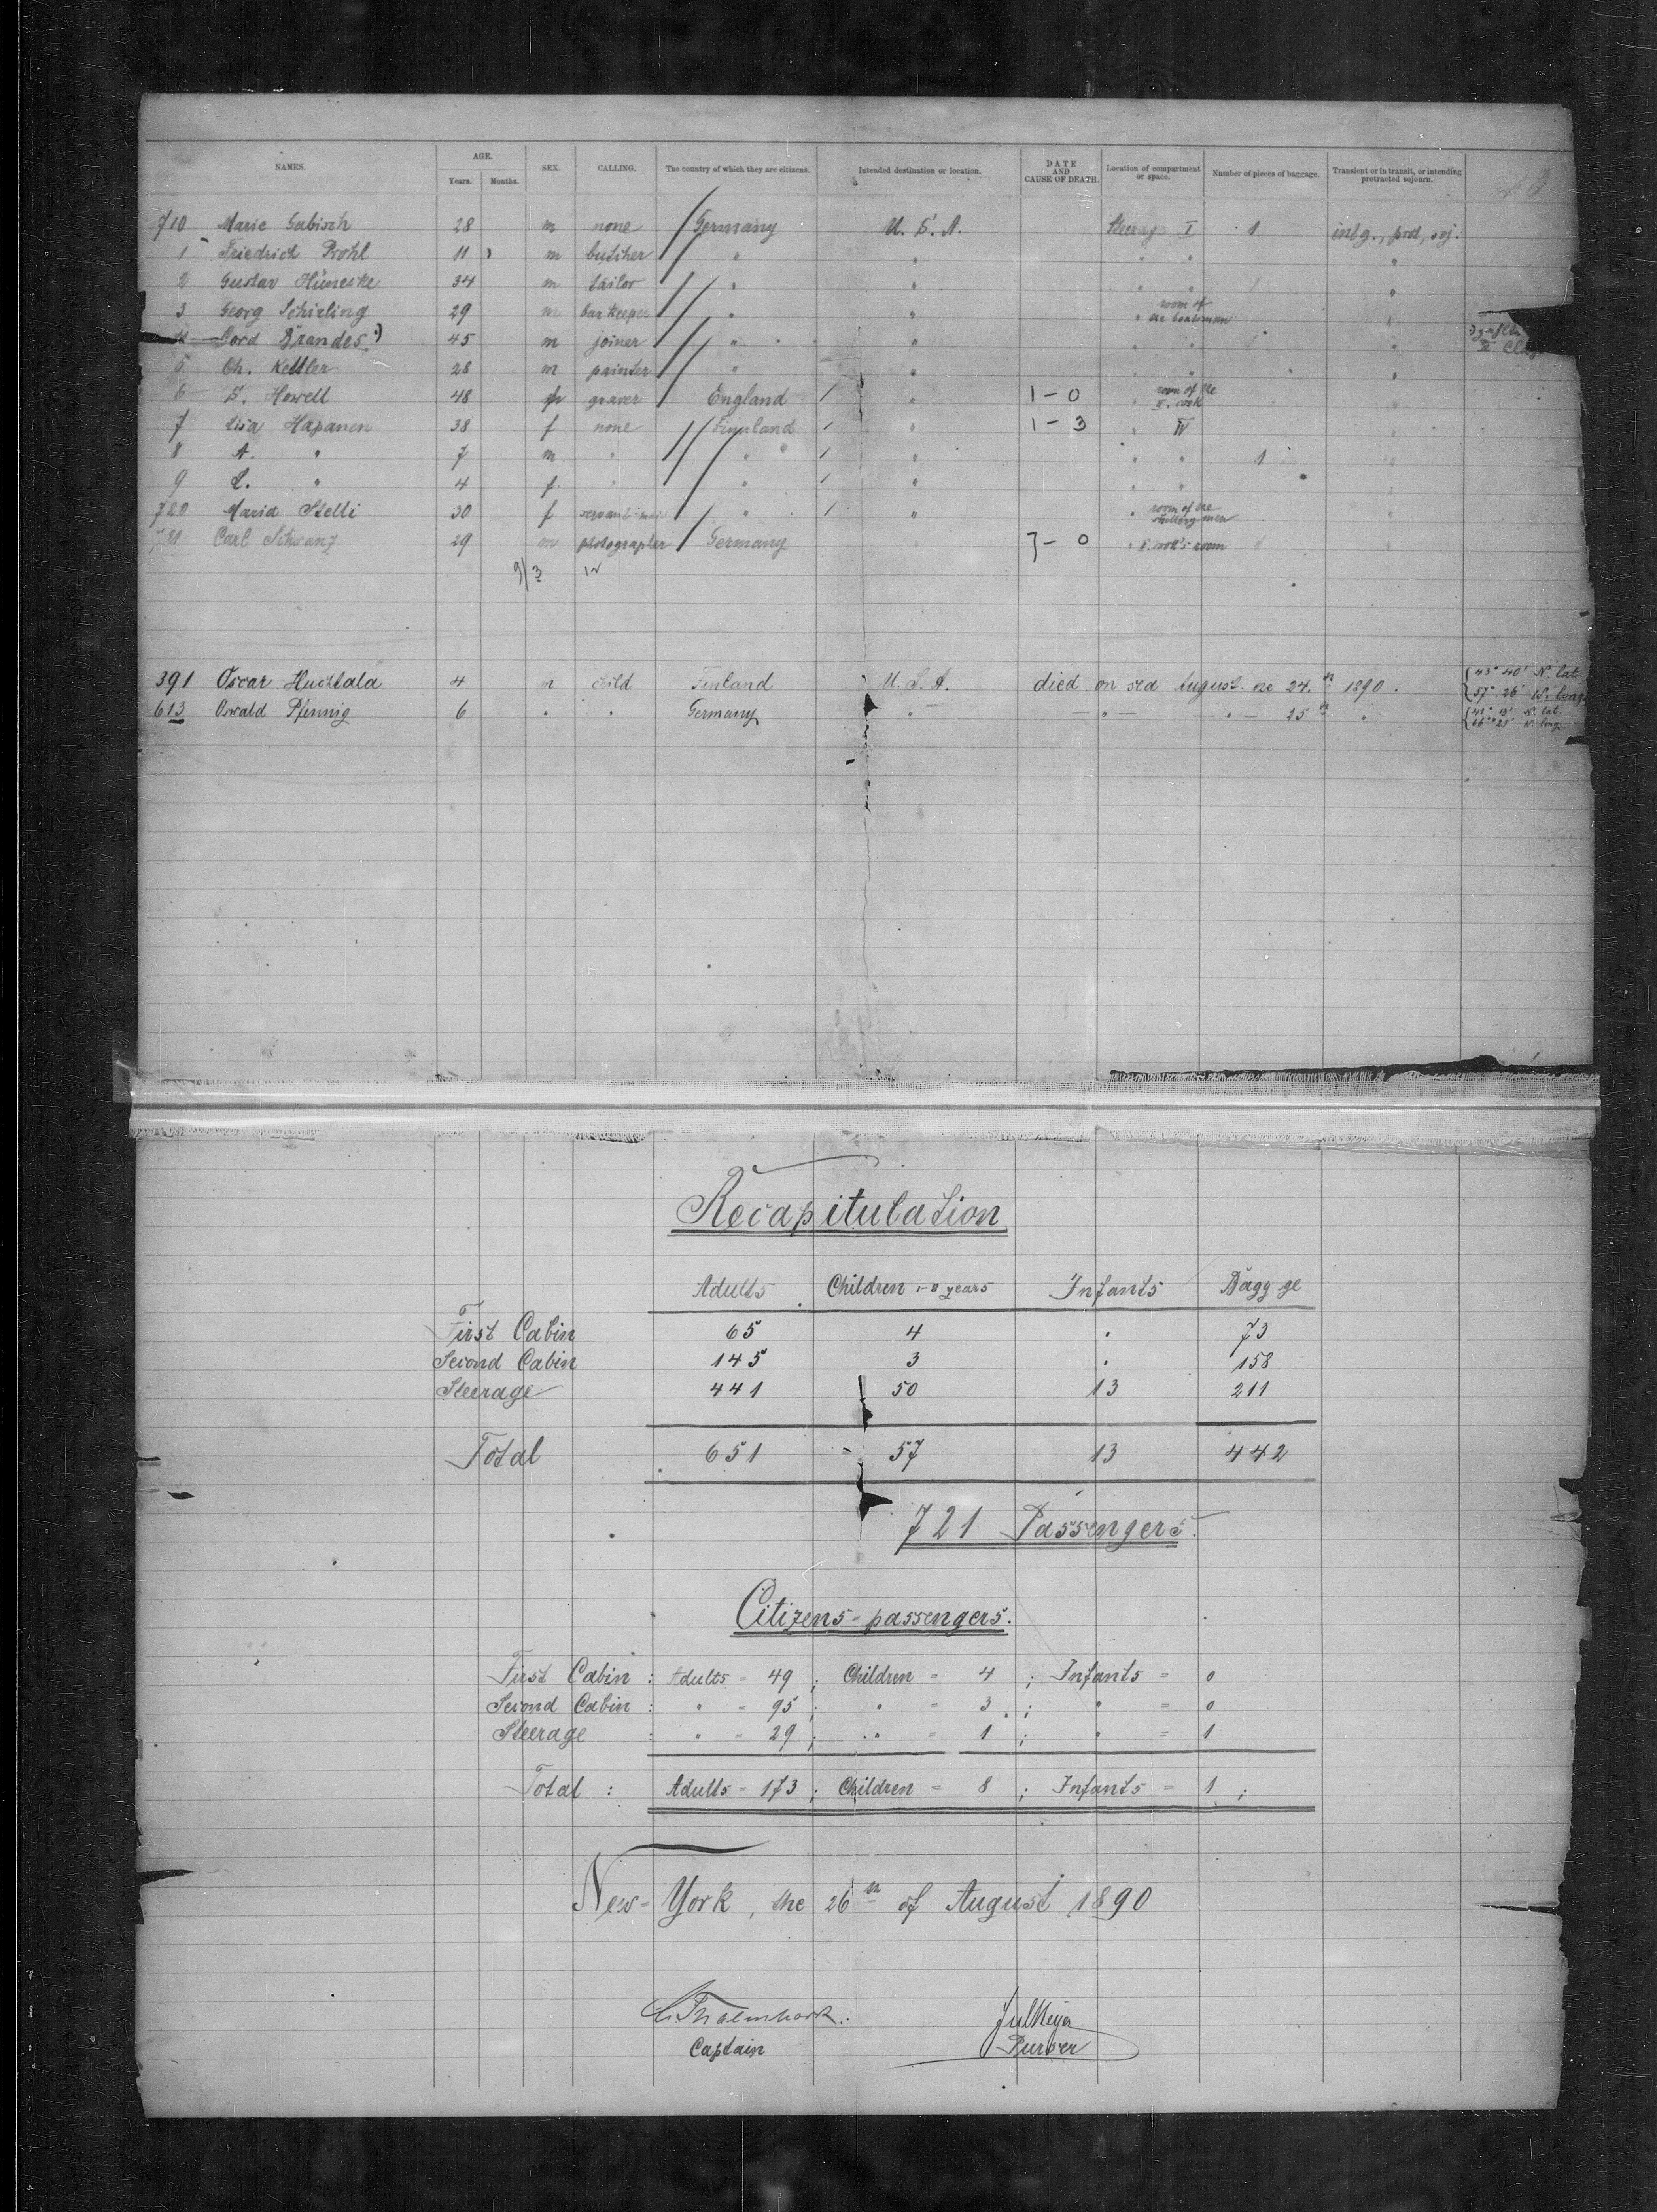 NAMES. AGE. SEX. CALLING. The country of which they are citizens. Intended destination or location. DATE AND CAUSE OF DEATH. Location of compartment or space. Number of pieces of baggage. Transient or in transit, or intending protracted sojourn.
Years. Months.
710 Marie Gabisch 28 m none Germany U. S. A. Steerage I 1 intg., prot, soj.
1 Friedrich Prohl 11 m butcher " " " " "
2 Gustav Hüneske 34 m tailor " " " " 1 "
3 Georg Schirling 29 m barkeeper " " " room of the boatsman "
4 Cord Brandes 45 m joiner " " " " "
5 Ch. Kettler 28 m painter " " " " "
6 S. Howell 48 graver England " 1-0 " room of the cook "
7 Lisa Hapanen 38 f none Finnland " 1-3 " IV "
8 A. " 7 m " " " " " 1 "
9 L. " 4 f " " " " "
720 Maria Stelli 30 f " " " room of the men
21 Carl Schwanz 29 m photographer Germany " 7-0 " cook's room
9/3 12
391 Oscar Huchtala 4 m child Finland U. S. A. died on sea August the 24.th 1890. { 43° 40' N. lat. 57° 26' W. long.
613 Oswald Pfennig 6 " " Germany " " " 25th " { 41° 13' N. lat. 66° 25' W. long.
Recapitulation
Adults Children 1-8 years Infants Bagg ge
First Cabin 65 4 . 73
Second Cabin 145 3 . 158
Steerage 441 50 13 211
Total 651 57 13 442
721 Passengers.
Citizens-passengers.
First Cabin : Adults = 49 ; Children = 4 ; Infants = 0
Second Cabin : " = 95 ; " = 3 ; " = 0
Steerage : " = 29 ; " = 1 ; " = 1
Total : Adults = 173 ; Children = 8 ; Infants = 1 ;
New-York, the 26th of August 1890
Captain
Jul Meyer
Purser